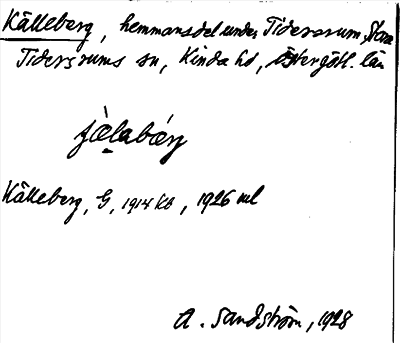 Källeberg, hemmansdel under Tidersrum, Stora
Tidersrums sn, Kinda hd, Östergötl. län
Källeberg, G, 1914 kb, 1926 ml
A. Sandström, 1928